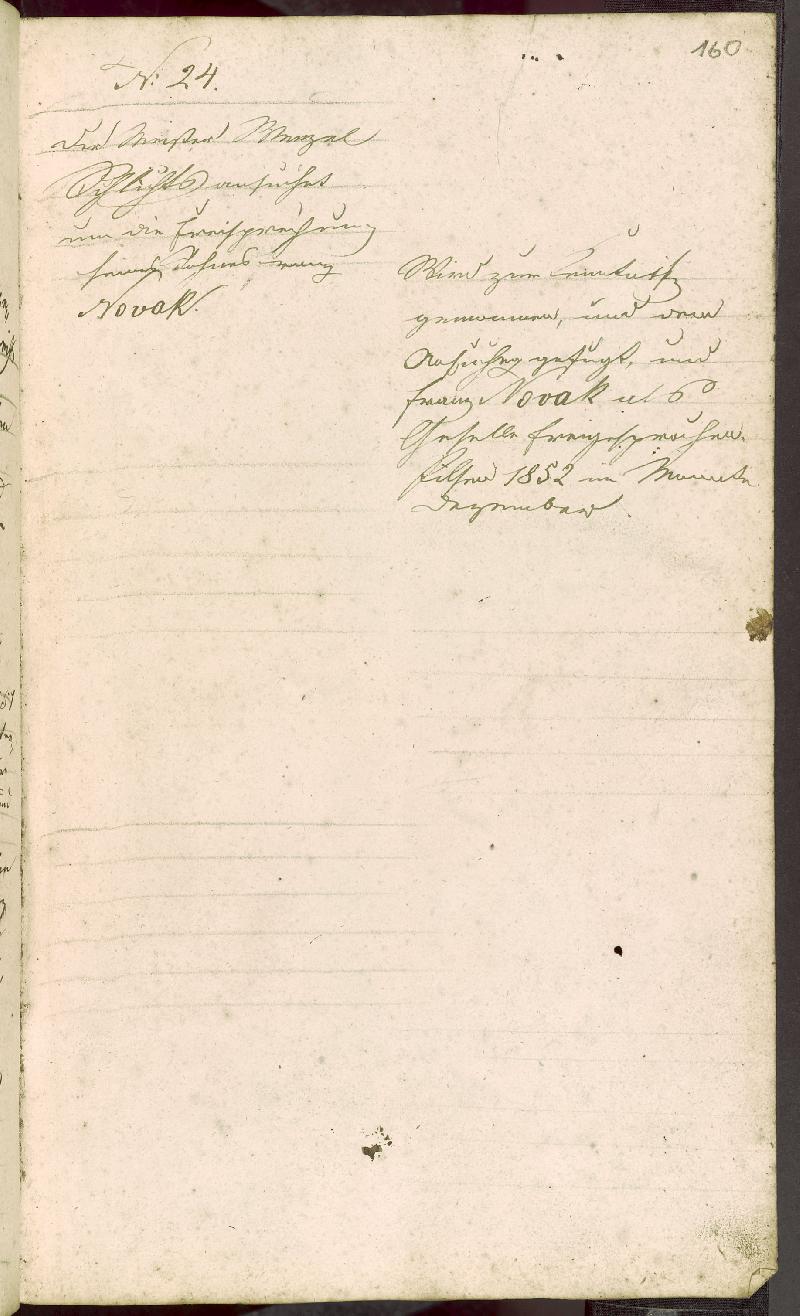 160
N: 24.
Der Meister Wenzel
ansuchet
um die Freisprechung
seines Sohnes Franz
Novak.
Wird zur Kenntniß
genommen, und dem
Ansuchen gefügt, und
Franz Novak als
Geselle freigesprochen.
Pilsen 1852 im Monate
Dezember.